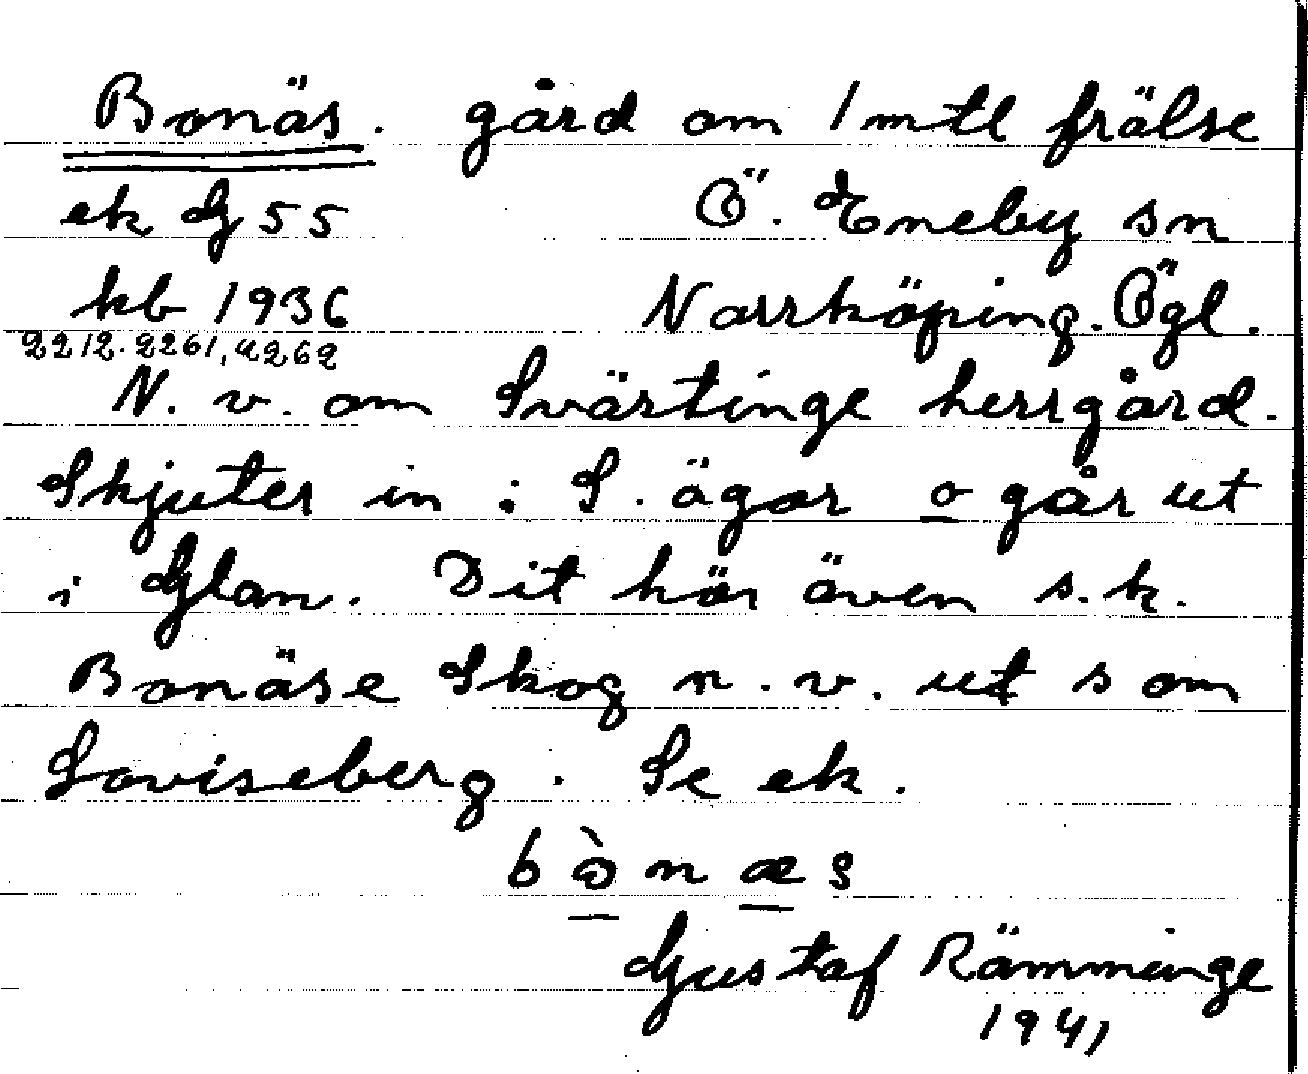 Bonäs. gård om 1 mtl frälse
ek G 55 Ö. Eneby sn
kb 1936 Norrköping. Ögl.
2212. 2261, 4262
N. v. om Svärtinge herrgård.
Skjuter in i S. ägor o går ut
i Glan. Dit hör även s.k.
Bonäse Skog n. v. ut som
Loviseberg. Se ek.
Gustaf Rämminge
1941